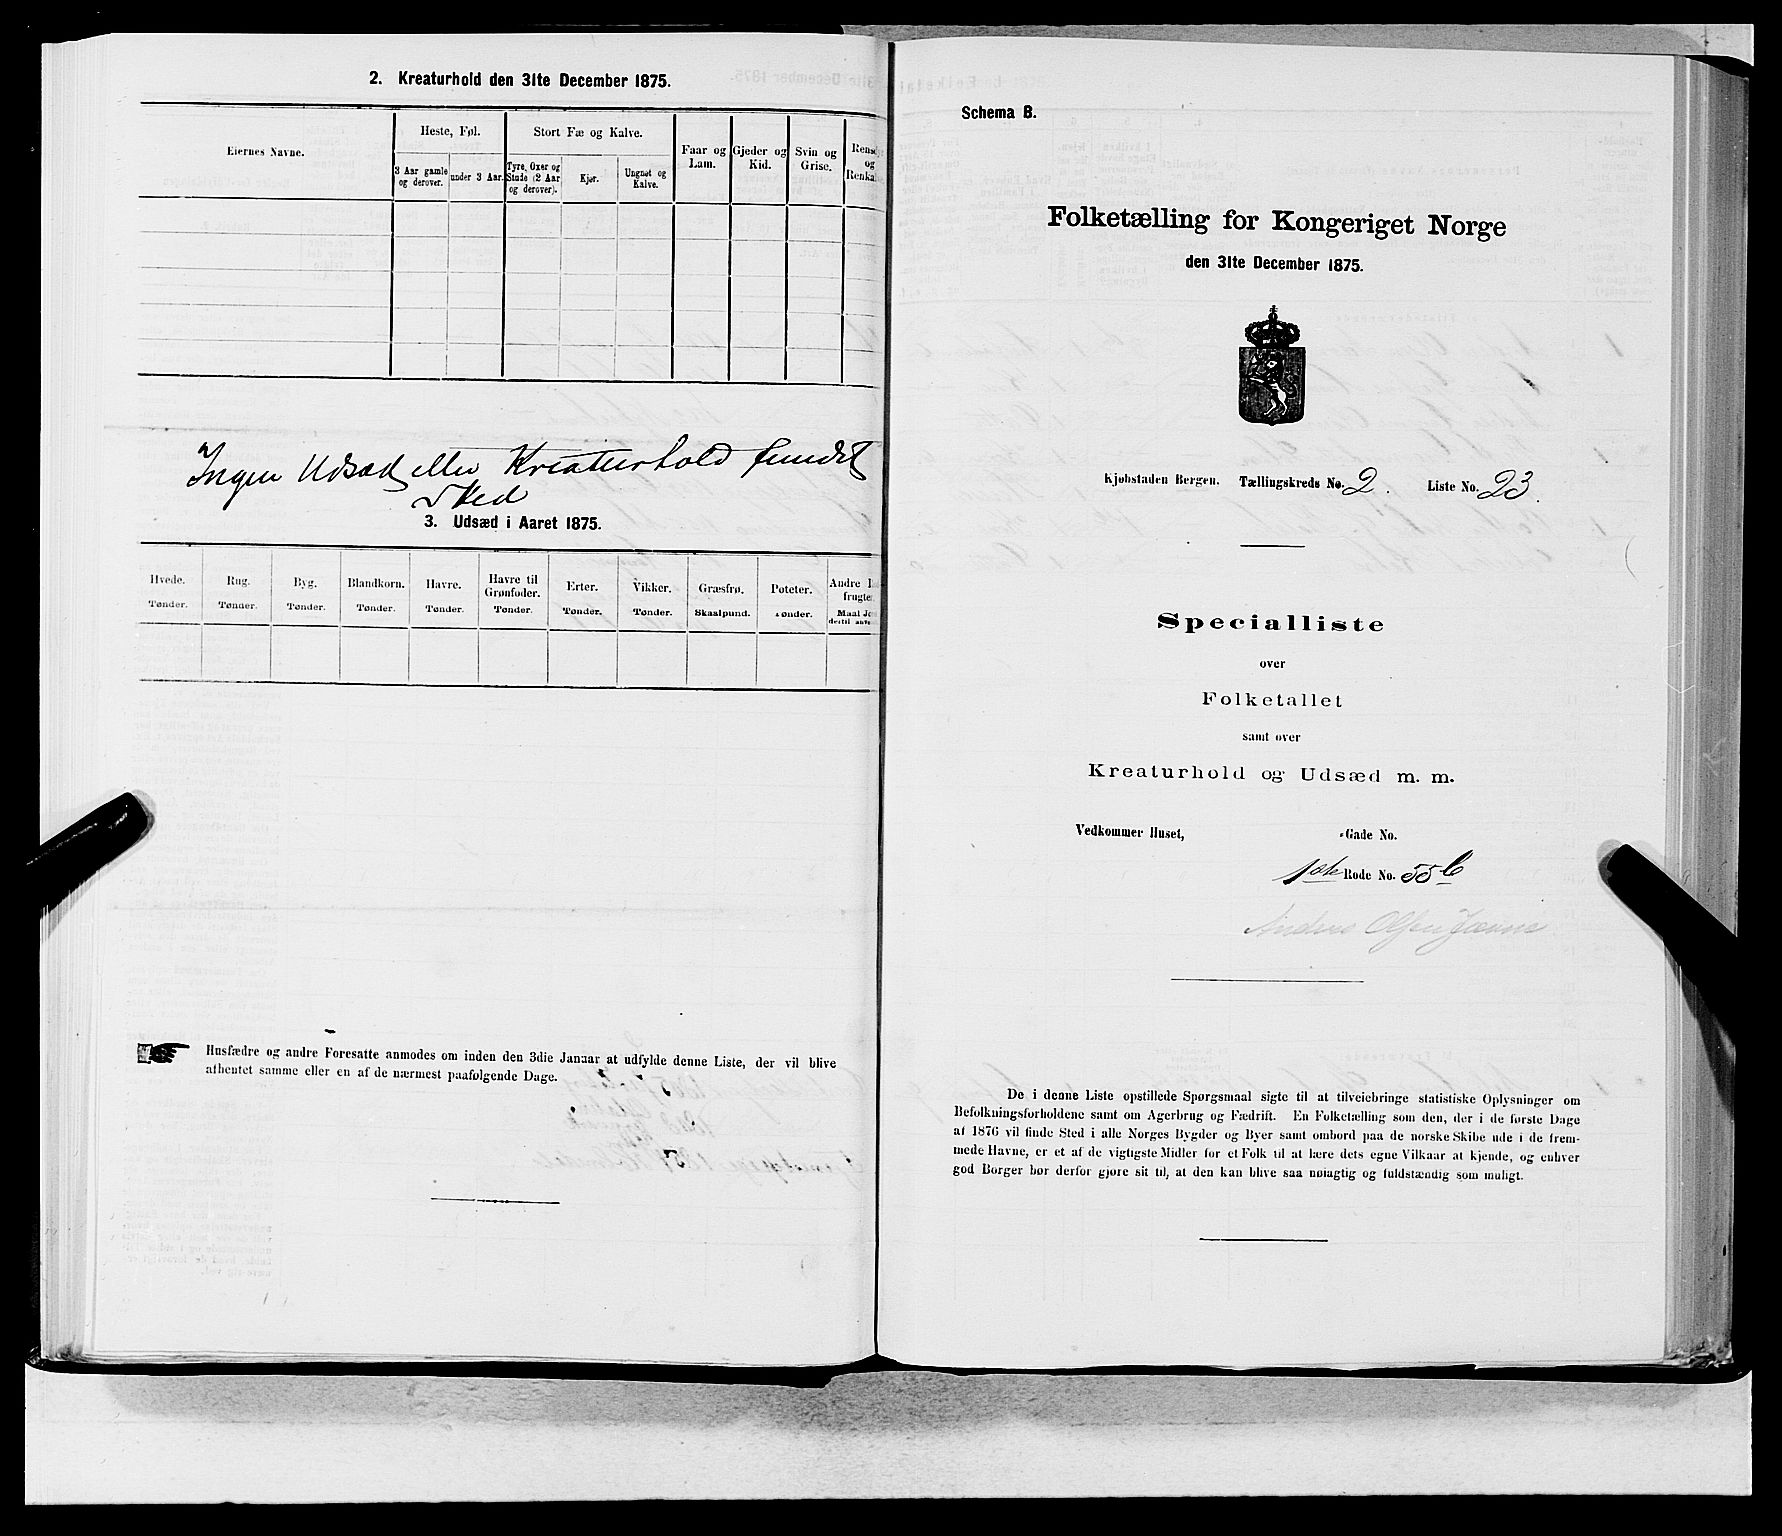 2. Kreaturhold den 31te December 1875.
Eiernes Navne.
Heste, Føl.
Stort Fæ og Kalve.
Faar og
Lam.
Gjeder og
Kid.
Svin og
Grise.
og
3 Aar gamle
og derover.
under 3 Aar.
Tyre, Oxer og
Stude (2 Aar
og derover).
Kjør.
Ungnøt og
Kalve.
Ingen Udsæd eller Kreaturhold fundet
Sted
3. Udsæd i Aaret 1875.
Hvede.
Tønder.
Rug.
Tønder.
Byg.
Tønder.
Blandkorn.
Tønder.
Havre.
Tønder.
Havre til
Grønfoder.
Tønder.
Erter.
Tønder.
Vikker.
Tønder.
Græsfrø.
Skaalpund.
Poteter.
Tønder.
Andre
frugter
Maal
dertil
Husfædre og andre Foresatte anmodes om inden den 3die Januar at udfylde denne Liste, der vil blive
afhentet samme eller en af de nærmest paafølgende Dage.
Schema B.
Folketælling for Kongeriget Norge
den 31te December 1875.
Kjøbstaden Bergen. Tællingskreds No. 2. Liste No. 23.
Specialliste
over
Folketallet
samt over
Kreaturhold og Udsæd m. m.
Vedkommer Huset, -Gade No.
1ste Rode No. 55b
Anders Olsen
De i denne Liste opstillede Spørgsmaal sigte til at tilveiebringe statistiske Oplysninger om
Befolkningsforholdene samt om Agerbrug og Fædrift. En Folketælling som den, der i de første Dage
af 1876 vil finde Sted i alle Norges Bygder og Byer samt ombord paa de norske Skibe ude i de frem-
mede Havne, er et af de vigtigste Midler for et Folk til at lære dets egne Vilkaar at kjende, og enhver
god Borger bør derfor gjøre sit til, at den kan blive saa nøiagtig og fuldstændig som muligt.